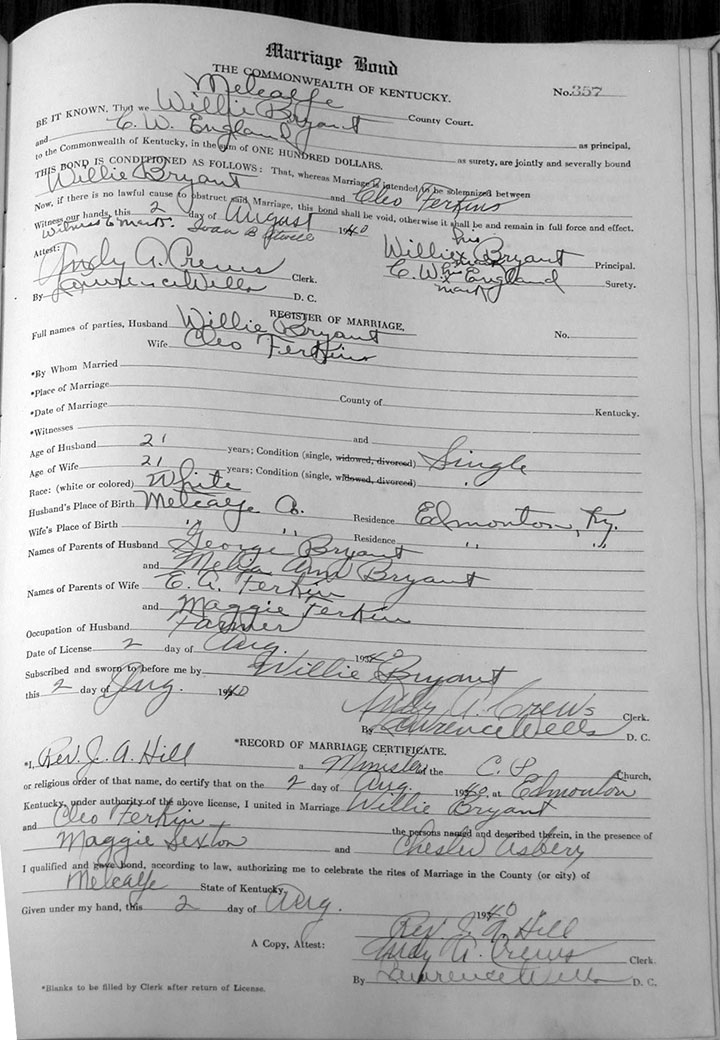 Marriage Bond
THE COMMONWEALTH OF KENTUCKY.
No. 357
Metcalfe County Court.
BE IT KNOWN, That we Willie Bryant as principal,
and E. W. England as surety, are jointly and severally bound
to the Commonwealth of Kentucky, in the sum of ONE HUNDRED DOLLARS.
THIS BOND IS CONDITIONED AS FOLLOWS: That, whereas Marriage is intended to be solemnized between
Willie Bryant and Cleo Ferkins
Now, if there is no lawful cause to obstruct said Marriage, this bond shall be void, otherwise it shall be and remain in full force and effect.
Witness our hands, this 2 day of August 1940
Witness to Mark.
Attest:
his
Willie x Bryant Principal.
mark
Andy A. Crews Clerk.
E. W. x his England Surety.
mark
By Lawrence Wells D. C.
REGISTER OF MARRIAGE.
Full names of parties, Husband Willie Bryant No.
Wife Cleo Ferkins
*By Whom Married
*Place of Marriage County of Kentucky.
*Date of Marriage
*Witnesses and
Age of Husband 21 years; Condition (single, widowed, divorced) Single
Age of Wife 21 years; Condition (single, widowed, divorced) "
Race: (white or colored) White
Husband's Place of Birth Metcalfe Co. Residence Edmonton, Ky.
Wife's Place of Birth " " Residence " "
Names of Parents of Husband George Bryant
and Melia Ann Bryant
Names of Parents of Wife E. A. Ferkin
and Maggie Ferkin
Occupation of Husband Farmer
Date of License 2 day of Aug. 1940
Subscribed and sworn to before me by Willie Bryant
this 2 day of Aug. 1940
Andy A. Crews Clerk.
By Lawrence Wells D. C.
*RECORD OF MARRIAGE CERTIFICATE.
*I, Rev. J. A. Hill a Minister of the C. P. Church,
or religious order of that name, do certify that on the 2 day of Aug. 1940, at Edmonton
Kentucky, under authority of the above license, I united in Marriage Willie Bryant
and Cleo Ferkin the persons named and described therein, in the presence of
Maggie Sexton and Chester Asbery
I qualified and gave bond, according to law, authorizing me to celebrate the rites of Marriage in the County (or city) of
Metcalfe State of Kentucky.
Given under my hand, this 2 day of Aug. 1940
Rev. J. A. Hill
A Copy, Attest: Andy A. Crews Clerk.
By Lawrence Wells D. C.
*Blanks to be filled by Clerk after return of License.